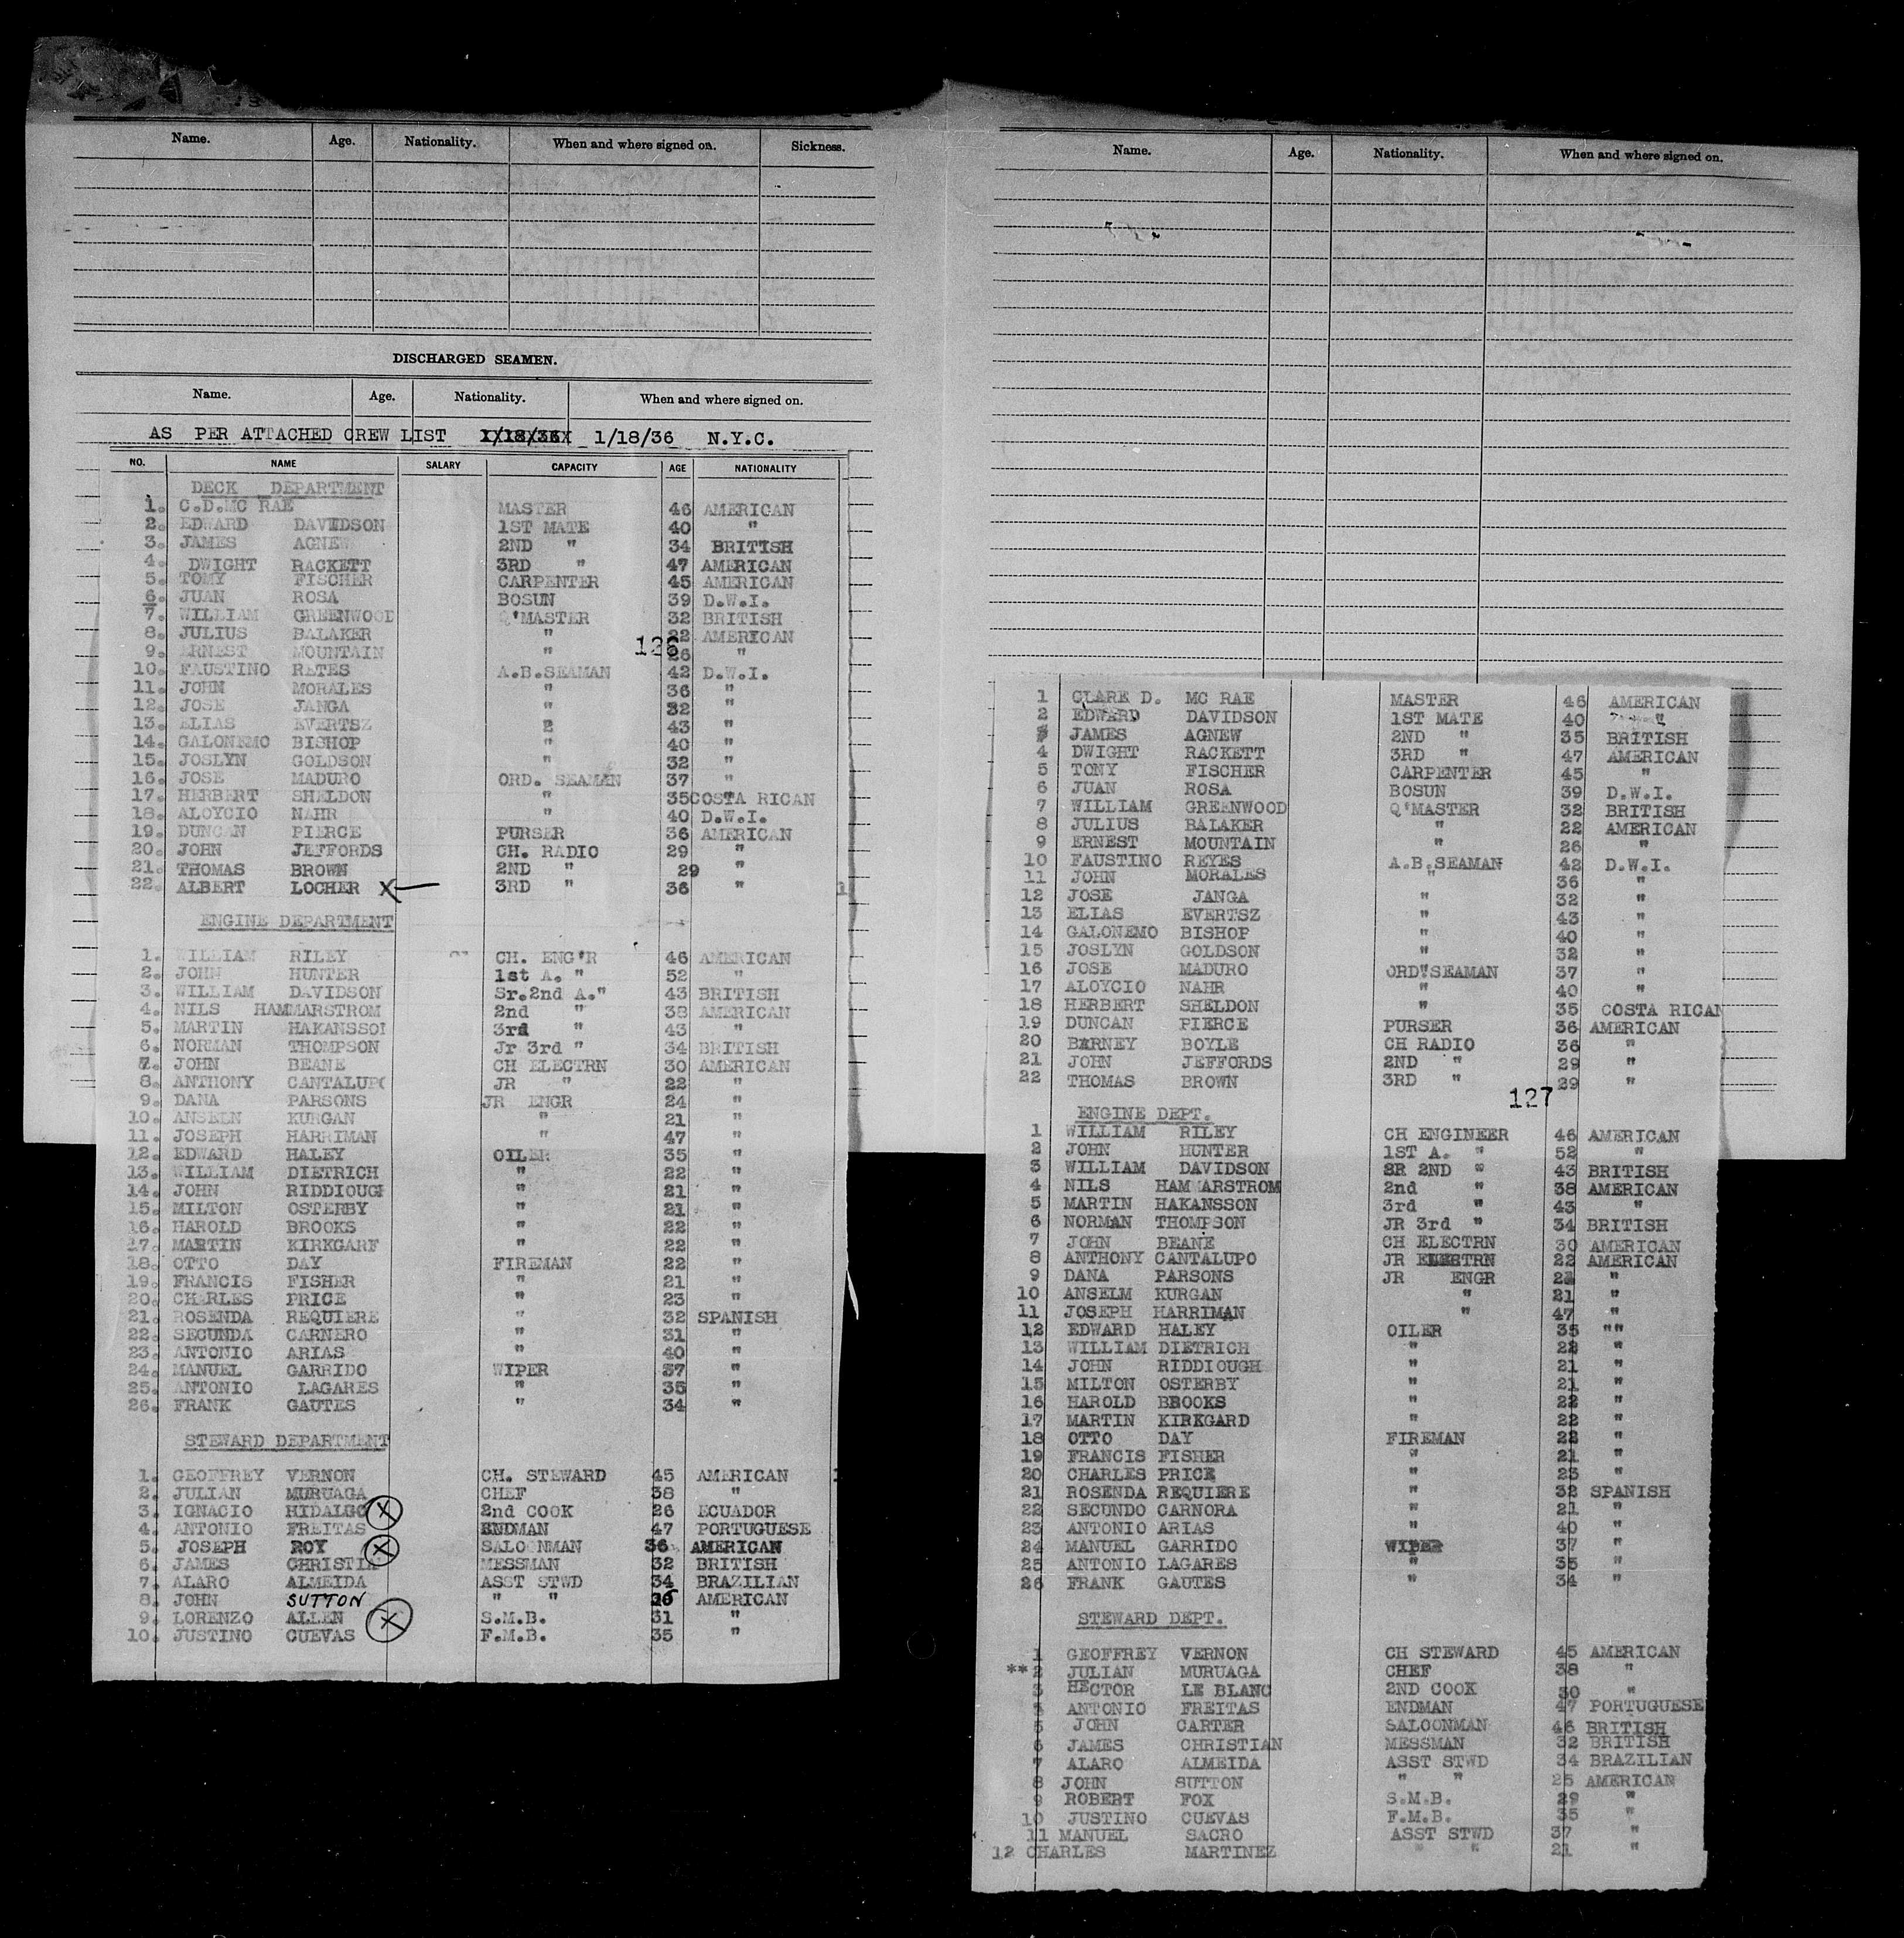 Name. Age. Nationality. When and where signed on. Sickness.
DISCHARGED SEAMEN.
Name. Age. Nationality. When and where signed on.
AS PER ATTACHED CREW LIST 1/18/36 1/18/36 N.Y.C.
NO. NAME SALARY CAPACITY AGE NATIONALITY
DECK DEPARTMENT
1. C.D.MC RAE MASTER 46 AMERICAN
2. EDWARD DAVIDSON 1ST MATE 40 "
3. JAMES AGNEW 2ND " 34 BRITISH
4. DWIGHT RACKETT 3RD " 47 AMERICAN
5. TOMY FISCHER CARPENTER 45 AMERICAN
6. JUAN ROSA BOSUN 39 D.W.I.
7. WILLIAM GREENWOOD Q'MASTER 32 BRITISH
8. JULIUS BALAKER " 22 AMERICAN
126
9. ERNEST MOUNTAIN " 26 "
10. FAUSTINO RETES A.B.SEAMAN 42 D.W.I.
11. JOHN MORALES " 36 "
12. JOSE JANGA " 32 "
13. ELIAS EVERTSZ 2 43 "
14. GALONEMO BISHOP " 40 "
15. JOSLYN GOLDSON " 32 "
16. JOSE MADURO ORD. SEAMAN 37 "
17. HERBERT SHELDON " 35 COSTA RICAN
18. ALOYCIO NAHR " 40 D.W.I.
19. DUNCAN PIERCE PURSER 36 AMERICAN
20. JOHN JEFFORDS CH. RADIO 29 "
21. THOMAS BROWN 2ND " 29 "
22. ALBERT LOCHER X 3RD " 36 "
ENGINE DEPARTMENT
1. WILLIAM RILEY CH. ENG'R 46 AMERICAN
2. JOHN HUNTER 1st A. " 52 "
3. WILLIAM DAVIDSON Sr.2nd A." 43 BRITISH
4. NILS HAMMARSTROM 2nd " 38 AMERICAN
5. MARTIN HAKANSSON 3rd " 43 "
6. NORMAN THOMPSON Jr 3rd " 34 BRITISH
7. JOHN BEANE CH ELECTRN 30 AMERICAN
8. ANTHONY CANTALUPO JR " 22 "
9. DANA PARSONS JR ENGR 24 "
10. ANSELN KURGAN " 21 "
11. JOSEPH HARRIMAN " 47 "
12. EDWARD HALEY OILER 35 "
13. WILLIAM DIETRICH " 22 "
14. JOHN RIDDIOUGH " 21 "
15. MILTON OSTERBY " 21 "
16. HAROLD BROOKS " 22 "
17. MARTIN KIRKGARF " 22 "
18. OTTO DAY FIREMAN 22 "
19. FRANCIS FISHER " 21 "
20. CHARLES PRICE " 23 "
21. ROSENDA REQUIERE " 32 SPANISH
22. SECUNDA CARNERO " 31 "
23. ANTONIO ARIAS " 40 "
24. MANUEL GARRIDO WIPER 37 "
25. ANTONIO LAGARES " 35 "
26. FRANK GAUTES " 34 "
STEWARD DEPARTMENT
1. GEOFFREY VERNON CH. STEWARD 45 AMERICAN
2. JULIAN MURUAGA CHEF 38 "
3. IGNACIO HIDALGO X 2nd COOK 26 ECUADOR
4. ANTONIO FREITAS ENDMAN 47 PORTUGUESE
5. JOSEPH ROY X SALOONMAN 36 AMERICAN
6. JAMES CHRISTIA MESSMAN 32 BRITISH
7. ALARO ALMEIDA ASST STWD 34 BRAZILIAN
8. JOHN SUTTON " " 26 AMERICAN
9. LORENZO ALLEN X S.M.B. 31 "
10. JUSTINO CUEVAS F.M.B. 35 "
Name. Age. Nationality. When and where signed on.
1 CLARE D. MC RAE MASTER 46 AMERICAN
2 EDWARD DAVIDSON 1ST MATE 40 "
JAMES AGNEW 2ND " 35 BRITISH
4 DWIGHT RACKETT 3RD " 47 AMERICAN
5 TONY FISCHER CARPENTER 45 "
6 JUAN ROSA BOSUN 39 D.W.I.
7 WILLIAM GREENWOOD Q'MASTER 32 BRITISH
8 JULIUS BALAKER " 22 AMERICAN
9 ERNEST MOUNTAIN " 26 "
10 FAUSTINO REYES A.B.SEAMAN 42 D.W.I.
11 JOHN MORALES " 36 "
12 JOSE JANGA " 32 "
13 ELIAS EVERTSZ " 43 "
14 GALONEMO BISHOP " 40 "
15 JOSLYN GOLDSON " 32 "
16 JOSE MADURO ORD"SEAMAN 37 "
17 ALOYCIO NAHR " 40 "
18 HERBERT SHELDON " 35 COSTA RICAN
19 DUNCAN PIERCE PURSER 36 AMERICAN
20 BARNEY BOYLE CH RADIO 36 "
21 JOHN JEFFORDS 2ND " 29 "
22 THOMAS BROWN 3RD " 29 "
127
ENGINE DEPT.
1 WILLIAM RILEY CH ENGINEER 46 AMERICAN
2 JOHN HUNTER 1ST A. " 52 "
3 WILLIAM DAVIDSON SR 2ND " 43 BRITISH
4 NILS HAMMARSTROM 2nd " 38 AMERICAN
5 MARTIN HAKANSSON 3rd " 43 "
6 NORMAN THOMPSON JR 3rd " 34 BRITISH
7 JOHN BEANE CH ELECTRN 30 AMERICAN
8 ANTHONY CANTALUPO JR ELECTRN 22 AMERICAN
9 DANA PARSONS JR ENGR "
10 ANSELM KURGAN " 21 "
11 JOSEPH HARRIMAN " 47 "
12 EDWARD HALEY OILER 35 ""
13 WILLIAM DIETRICH " 22 "
14 JOHN RIDDIOUGH " 21 "
15 MILTON OSTERBY " 21 "
16 HAROLD BROOKS " 22 "
17 MARTIN KIRKGARD " 22 "
18 OTTO DAY FIREMAN 22 "
19 FRANCIS FISHER " 21 "
20 CHARLES PRICE " 23 "
21 ROSENDA REQUIERE " 32 SPANISH
22 SECUNDO CARNORA " 21 "
23 ANTONIO ARIAS " 40 "
24 MANUEL GARRIDO WIPER 37 "
25 ANTONIO LAGARES " 35 "
26 FRANK GAUTES " 34 "
STEWARD DEPT.
1 GEOFFREY VERNON CH STEWARD 45 AMERICAN
**2 JULIAN MURUAGA CHEF 38 "
3 HECTOR LE BLANC 2ND COOK 30 "
ANTONIO FREITAS ENDMAN 47 PORTUGUESE
5 JOHN CARTER SALOONMAN 46 BRITISH
6 JAMES CHRISTIAN MESSMAN 32 BRITISH
7 ALARO ALMEIDA ASST STWD 34 BRAZILIAN
8 JOHN SUTTON " " 25 AMERICAN
9 ROBERT FOX S.M.B. 29 "
10 JUSTINO CUEVAS F.M.B. 35 "
11 MANUEL SACRO ASST STWD 37 "
12 CHARLES MARTINEZ " " 21 "